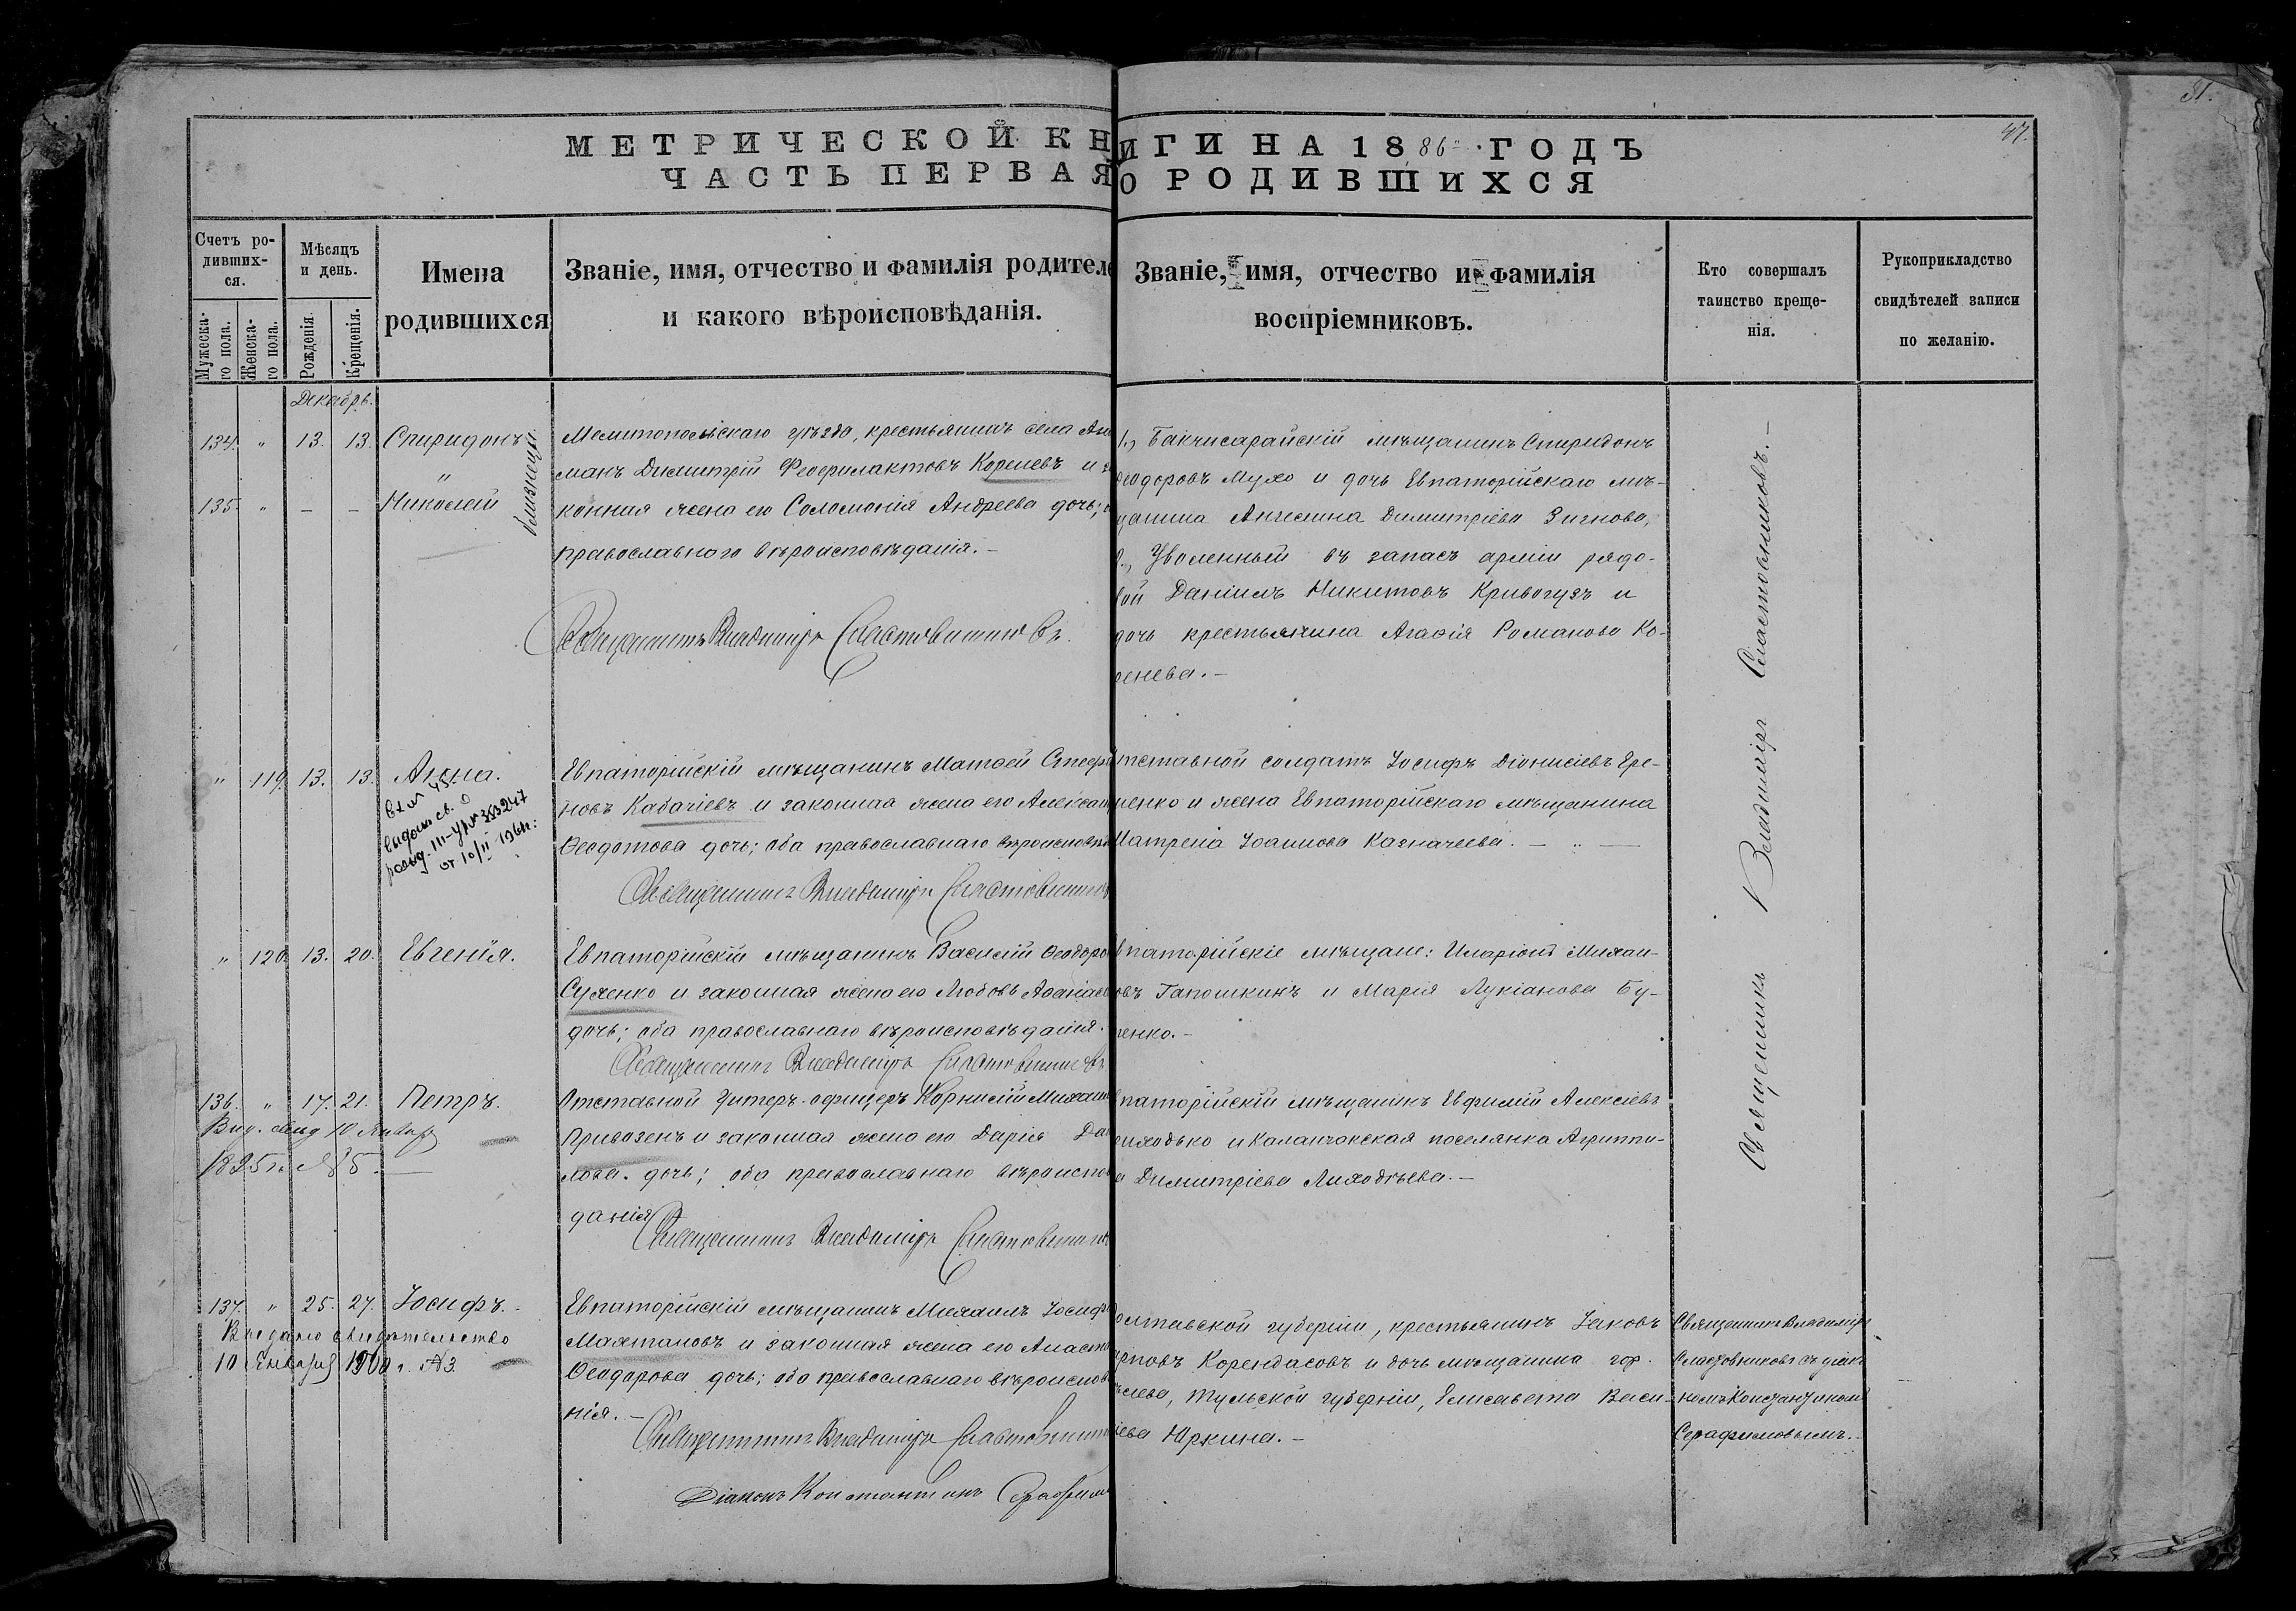 51.
47.
МЕТРИЧЕСКОЙ КНИГИ НА 1886 ГОДЪ
ЧАСТЬ ПЕРВАЯ О РОДИВШИХСЯ
Счетъ ро-
дивших-
ся.
Мужеска-
го пола.
Женска-
го пола.
Мѣсяцъ
и день.
Рожденія.
Крещенія.
Имена
родившихся
Званіе, имя, отчество и фамилія родителе
и какого вѣроисповѣданія.
Званіе, имя, отчество и фамилія
воспріемниковъ.
Кто совершалъ
таинство креще-
нія.
Рукоприкладство
свидѣтелей записи
по желанію.
Декабрь.
134. " 13. 13. Спиридонъ
"
135. " – – Николай
близнецы
Мелитопольскаго уѣзда, крестьянинъ села
манъ Димитрій Феофилактовъ Кореневъ и
конная жена его Соломонія Андреева дочь;
православнаго вѣроисповѣданія. –
Священникъ Владиміръ Сластовниковъ.
1., Бакчисарайскій мѣщанинъ Спиридонъ
еодоровъ Мухо и дочь Евпаторійскаго мѣ-
щанина Ангелина Димитріева Зигнова,
2., Уволенный въ запасъ арміи рядо-
вой Даніилъ Никитовъ Кривогузъ и
дочь крестьянина Агафія Романова Ко-
ренева. –
" 119. 13. 13. Анна.
выдано св. о
рожд. III-УР № 353247
от 10/II 1961
Евпаторійскій мѣщанинъ Матѳей Стефа
новъ Кабачіевъ и законная жена его Алексан
Ѳеодотова дочь; оба православнаго вѣроисповѣ
Священникъ Владиміръ Сластовников
тставной солдатъ Іосифъ Діонисіевъ Ере-
менко и жена Евпаторійскаго мѣщанина
Матрена Іоаннова Казначеева. – " –
" 120. 13. 20. Евгенія.
Евпаторійскій мѣщанинъ Василій Ѳеодоро
Суженко и законная жена его Любовь Аѳанасі
дочь; оба православнаго вѣроисповѣданія.
Священникъ Владиміръ Сластовниковъ
Евпаторійскіе мѣщане: Иларіонъ Михаи-
овъ Гапошкинъ и Марія Лукіанова Бу-
енко. –
136. " 17. 21. Петръ.
Выд. свид 10 Январ
1895 г. № 5.
Отставной Унтеръ-офицеръ Корнилій Михаи
Привозенъ и законная жена его Дарія Да
лова. дочь; оба православнаго вѣроиспов
данія
Священникъ Владиміръ Сластовников
впаторійскій мѣщанинъ Евфимій Алексіевъ
риходько и Каланчакская поселянка Агриппи-
а Димитріева Лиходѣева. –
Священникъ Владиміръ Сластовниковъ. –
137. " 25. 27. Іосифъ.
Выдано свидѣтельство
10 Января 1900 г. № 3
Евпаторійскій мѣщанинъ Михаилъ Іосиф
Махтановъ и законная жена его Анаста
Ѳеодорова дочь; оба православнаго вѣроиспов
нія. –
Священникъ Владиміръ Сластовник
Діаконъ Константинъ Серафим
олтавской губерніи, крестьянинъ Іаковъ
рповъ Корендасовъ и дочь мѣщанина гор.
ѣлева, Тульской губерніи, Елисавета Васи-
іева Юркина. –
Священникъ Владиміръ
Сластовниковъ съ діако
номъ Константиномъ
Серафимовымъ. –